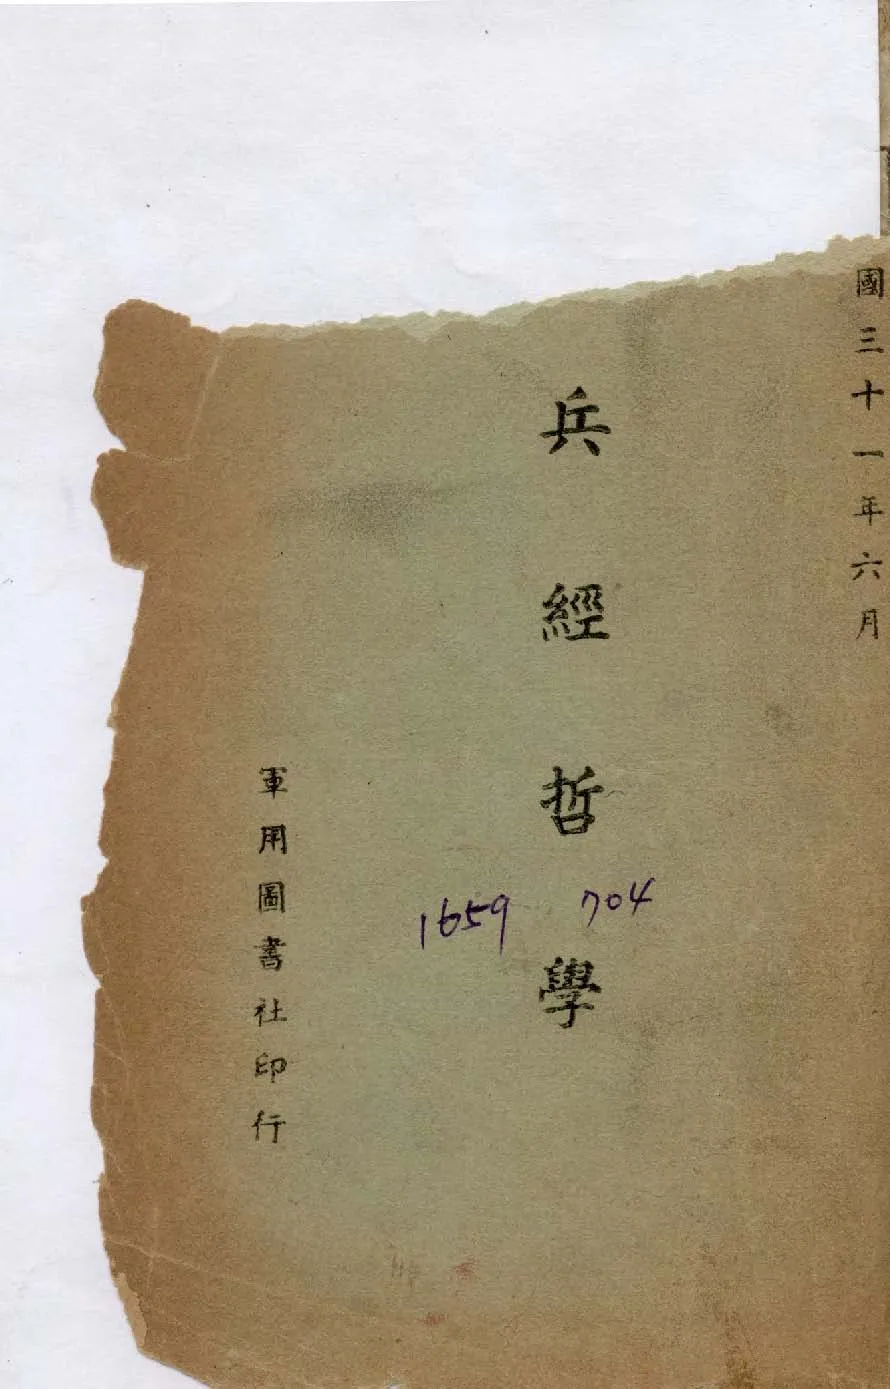 國三十一年六月
兵經哲學
1659 704
軍用圖書社印行